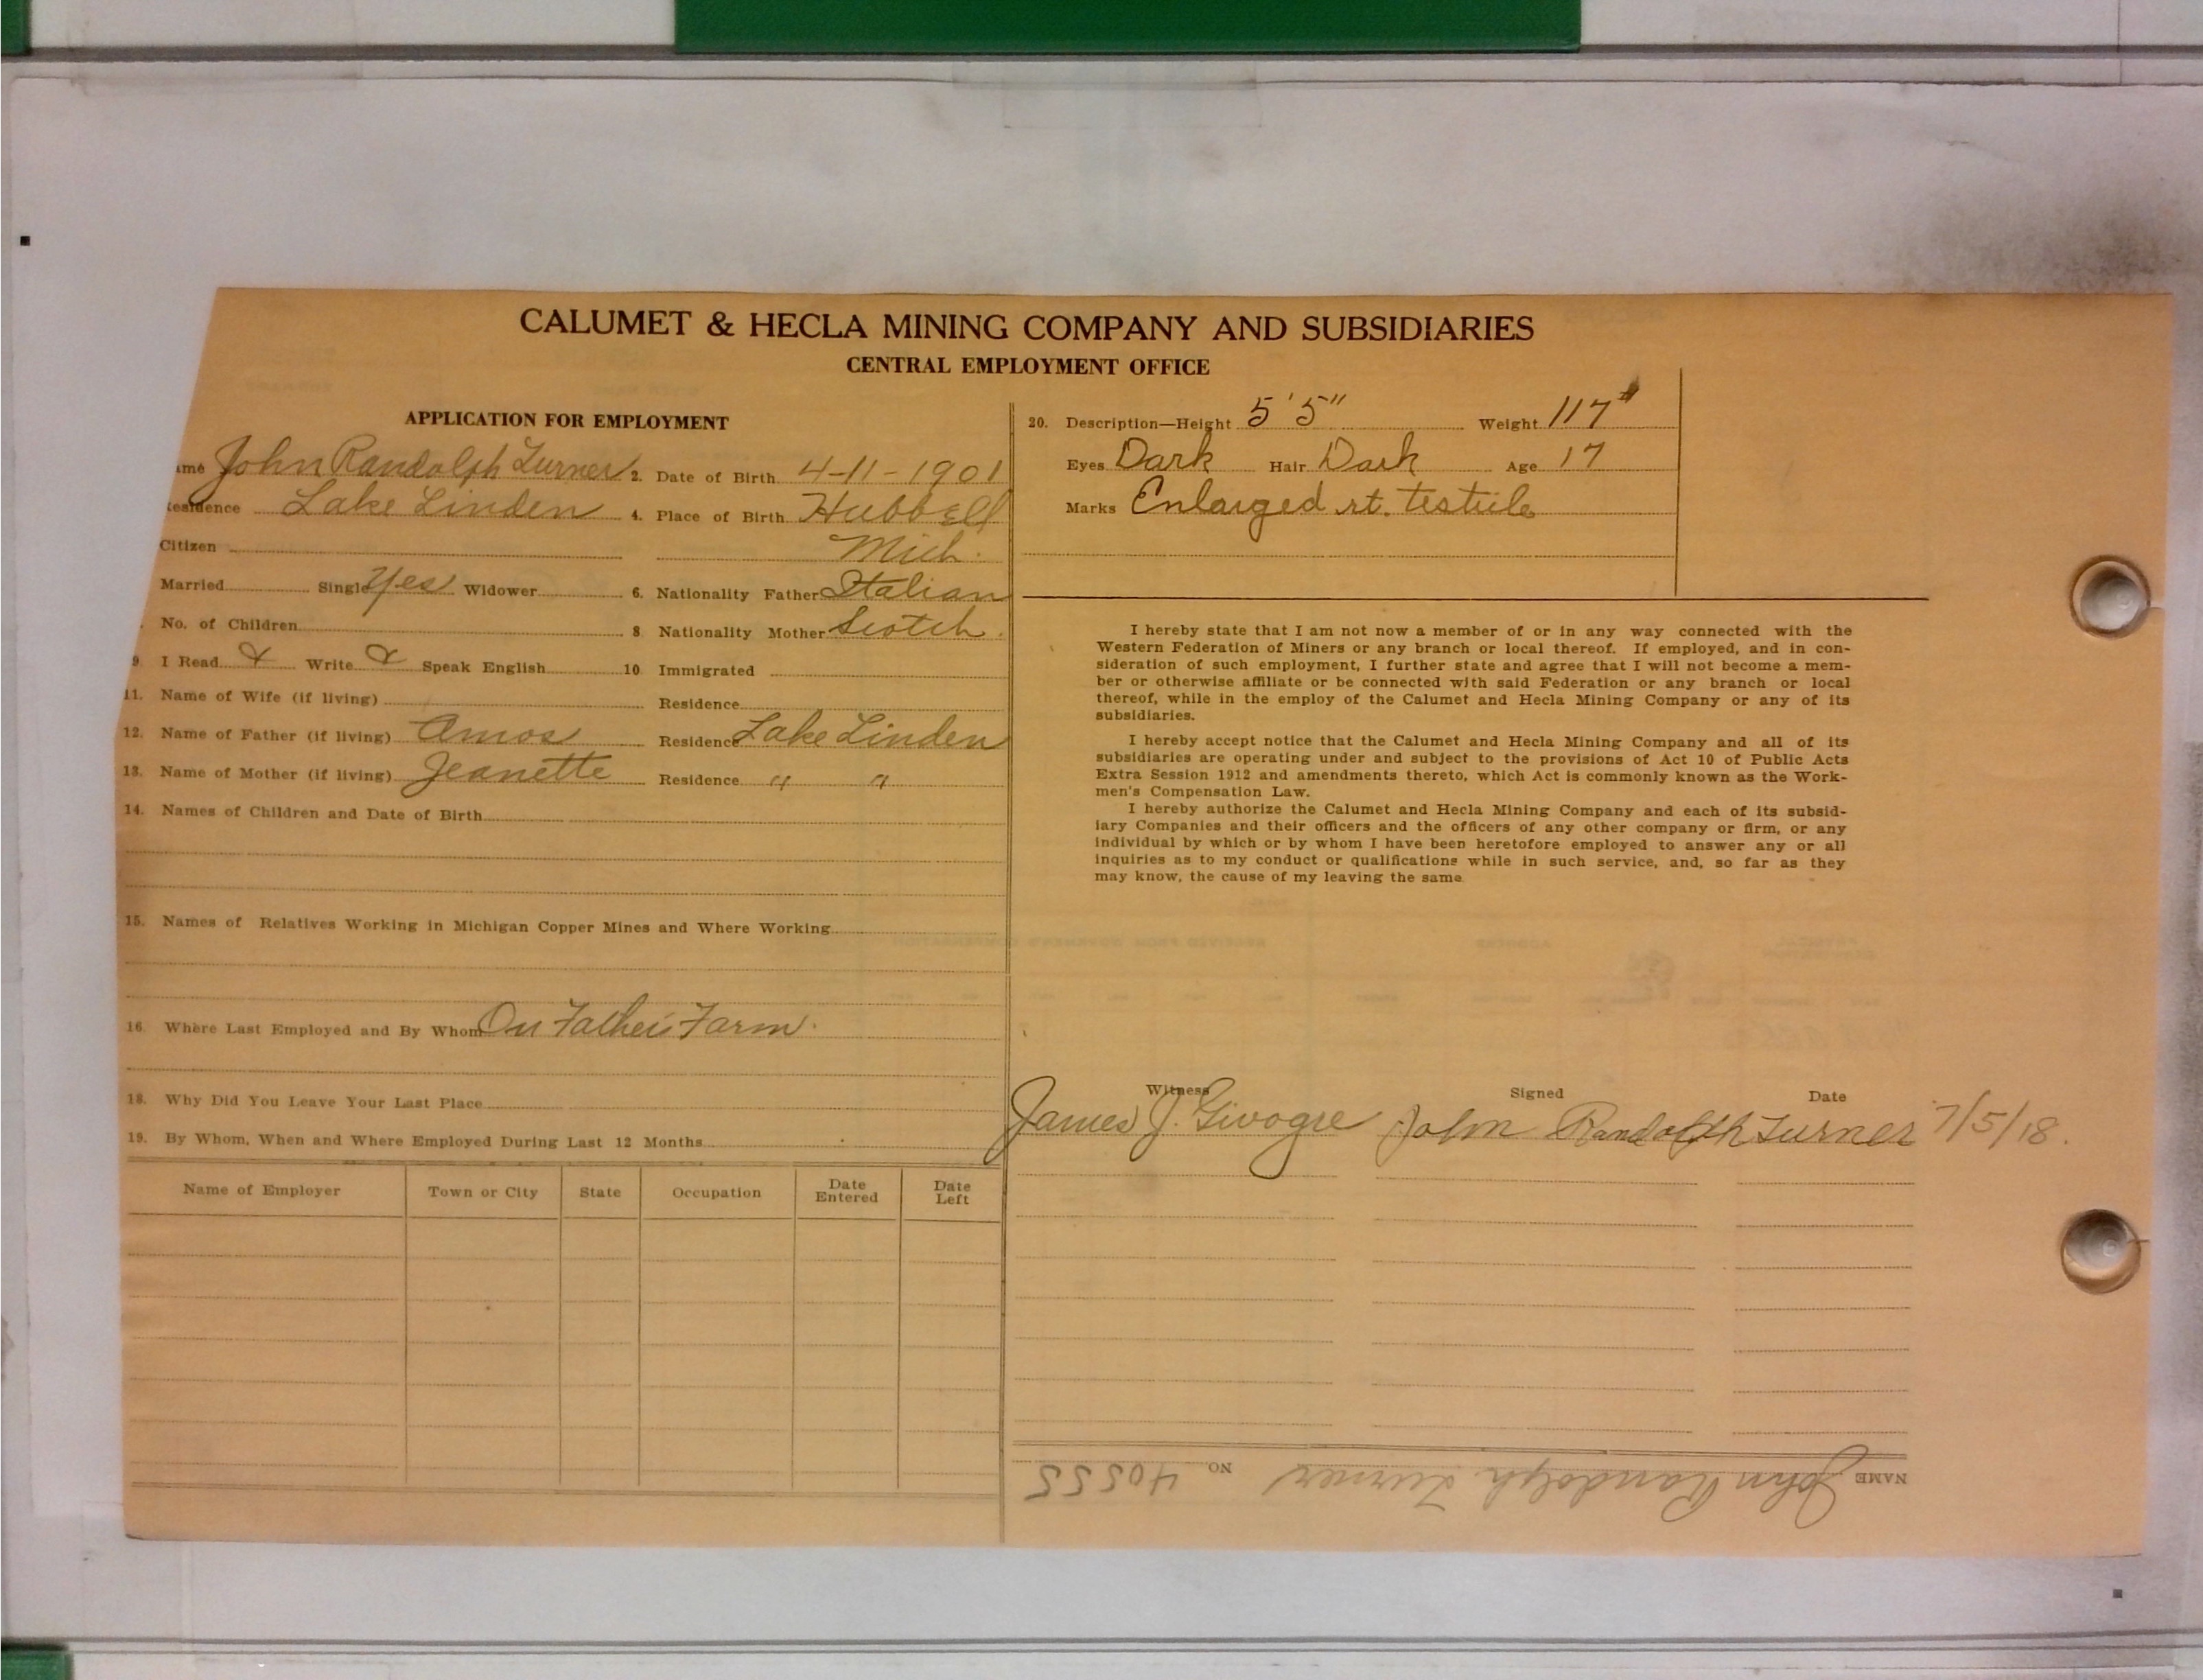 CALUMET & HECLA MINING COMPANY AND SUBSIDIARIES
CENTRAL EMPLOYMENT OFFICE
APPLICATION FOR EMPLOYMENT
ame John Randolph Turner 2. Date of Birth 4-11-1901
Residence Lake Linden 4. Place of Birth Hubbell
Citizen Mich.
Married Single Yes Widower 6. Nationality Father Italian
No. of Children 8 Nationality Mother Scotch.
9. I Read & Write & Speak English 10 Immigrated
11. Name of Wife (if living) Residence
12. Name of Father (if living) Amos Residence Lake Linden
13. Name of Mother (if living) Jeanette Residence " "
14. Names of Children and Date of Birth
15. Names of Relatives Working in Michigan Copper Mines and Where Working
16. Where Last Employed and By Whom On Father's Farm.
18. Why Did You Leave Your Last Place
19. By Whom, When and Where Employed During Last 12 Months
Name of Employer Town or City State Occupation Date Entered Date Left
20. Description—Height 5'5" Weight 117#
Eyes Dark Hair Dark Age 17
Marks Enlarged rt. testicle
I hereby state that I am not now a member of or in any way connected with the
Western Federation of Miners or any branch or local thereof. If employed, and in con-
sideration of such employment, I further state and agree that I will not become a mem-
ber or otherwise affiliate or be connected with said Federation or any branch or local
thereof, while in the employ of the Calumet and Hecla Mining Company or any of its
subsidiaries.
I hereby accept notice that the Calumet and Hecla Mining Company and all of its
subsidiaries are operating under and subject to the provisions of Act 10 of Public Acts
Extra Session 1912 and amendments thereto, which Act is commonly known as the Work-
men's Compensation Law.
I hereby authorize the Calumet and Hecla Mining Company and each of its subsid-
iary Companies and their officers and the officers of any other company or firm, or any
individual by which or by whom I have been heretofore employed to answer any or all
inquiries as to my conduct or qualifications while in such service, and, so far as they
may know, the cause of my leaving the same
Witness Signed Date
James J. Givogre John Randolph Turner 7/5/18.
NAME John Randolph Turner NO 40555